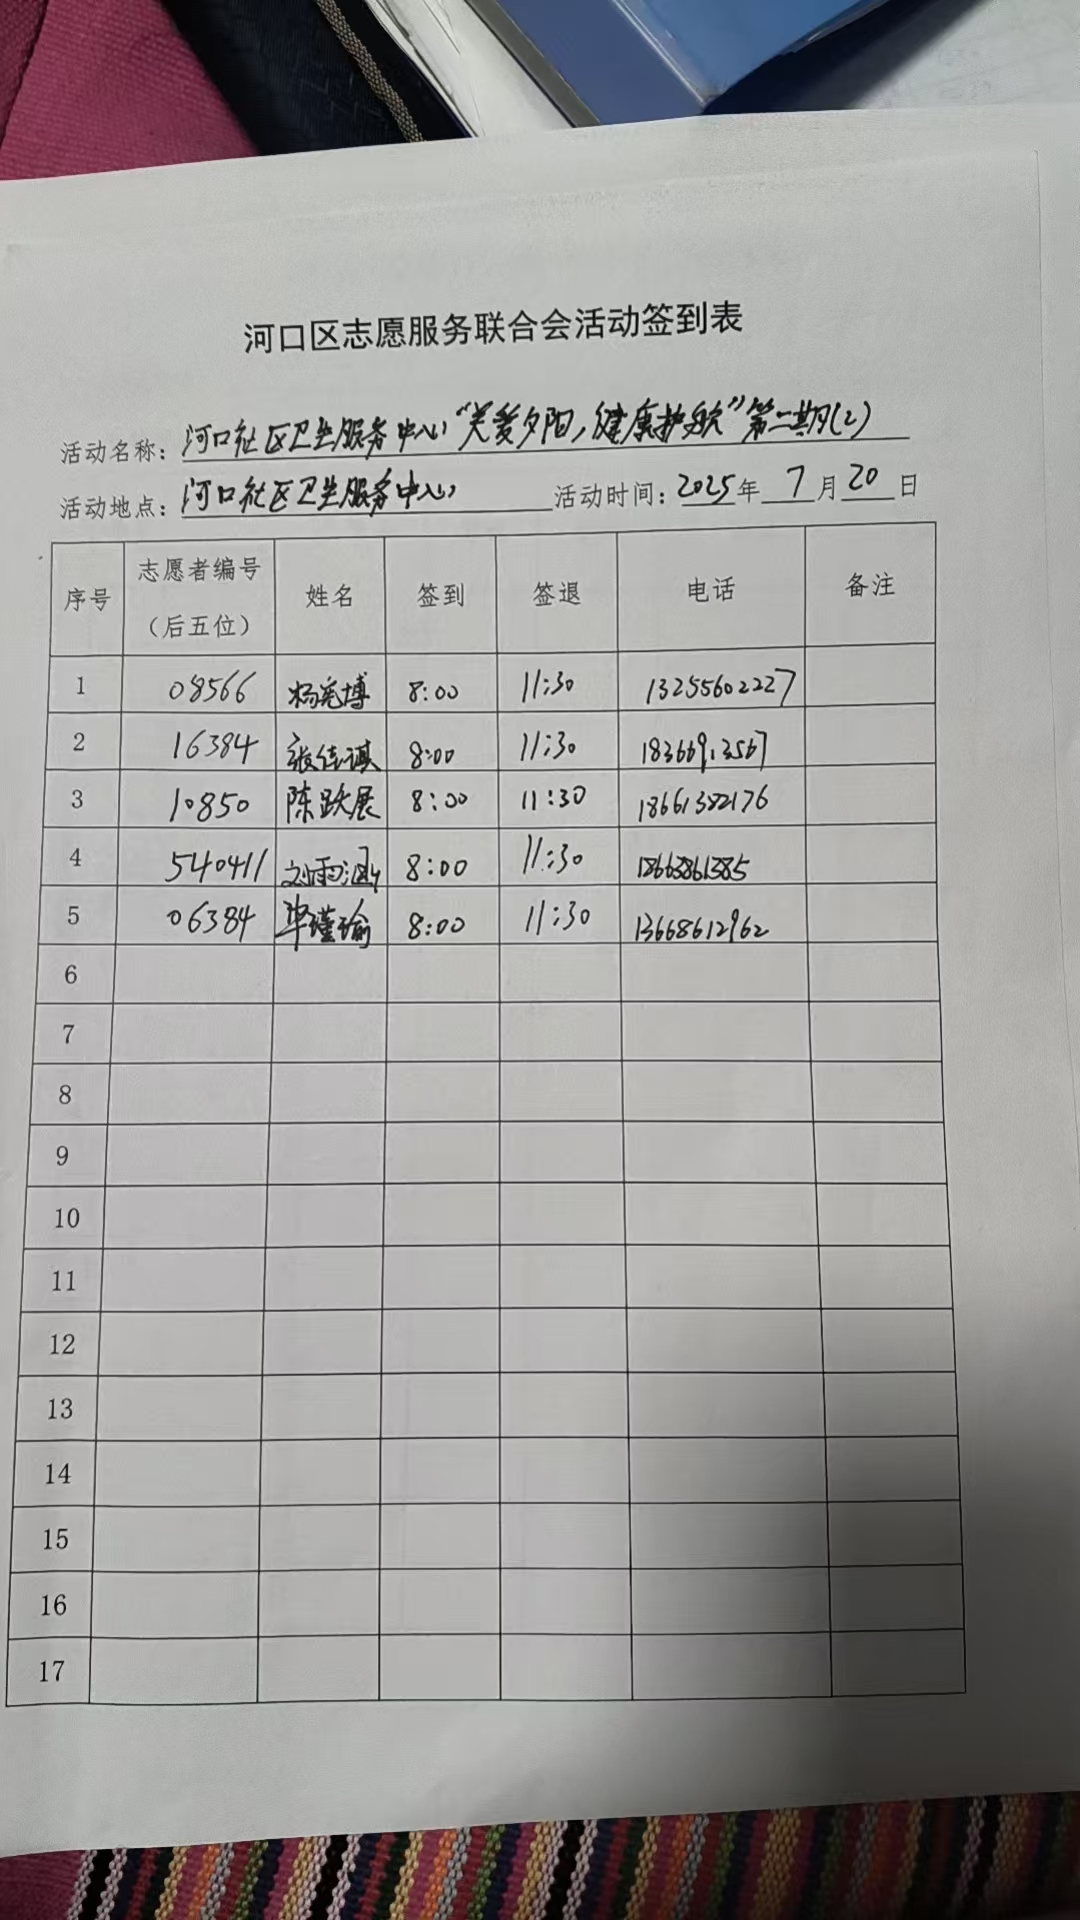 河口区志愿服务联合会活动签到表
活动名称：河口社区卫生服务中心“关爱夕阳，健康护航”第二期(2)
活动地点：河口社区卫生服务中心 活动时间：2025年7月20日
序号 志愿者编号（后五位） 姓名 签到 签退 电话 备注
1 08566 杨宪博 8:00 11:30 13255602227
2 16384 张佳琪 8:00 11:30 18366913567
3 10850 陈跃展 8:00 11:30 18661382176
4 540411 刘雨涵 8:00 11:30
5 06384 毕瑾瑜 8:00 11:30 13668612962
6
7
8
9
10
11
12
13
14
15
16
17